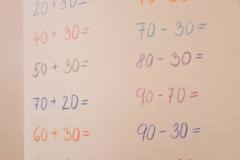 20+50=
40+30=
50+30=
70+20=
60+30=
70-30=
80-30=
90-70=
90-30=